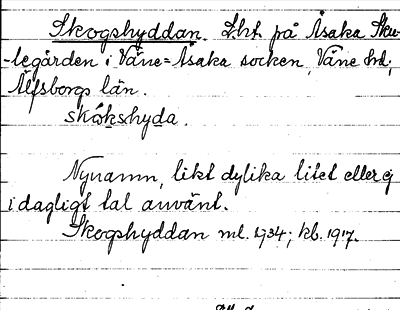 Skogshyddan. Lht. på Åsaka Sku-
-legården i Väne=Åsaka socken, Väne hd,
Älfsborgs län.
skókshyda.
Nynamn, likt dylika litet eller ej
i dagligt tal använt.
Skogshyddan ml. 1934; kb. 1917.